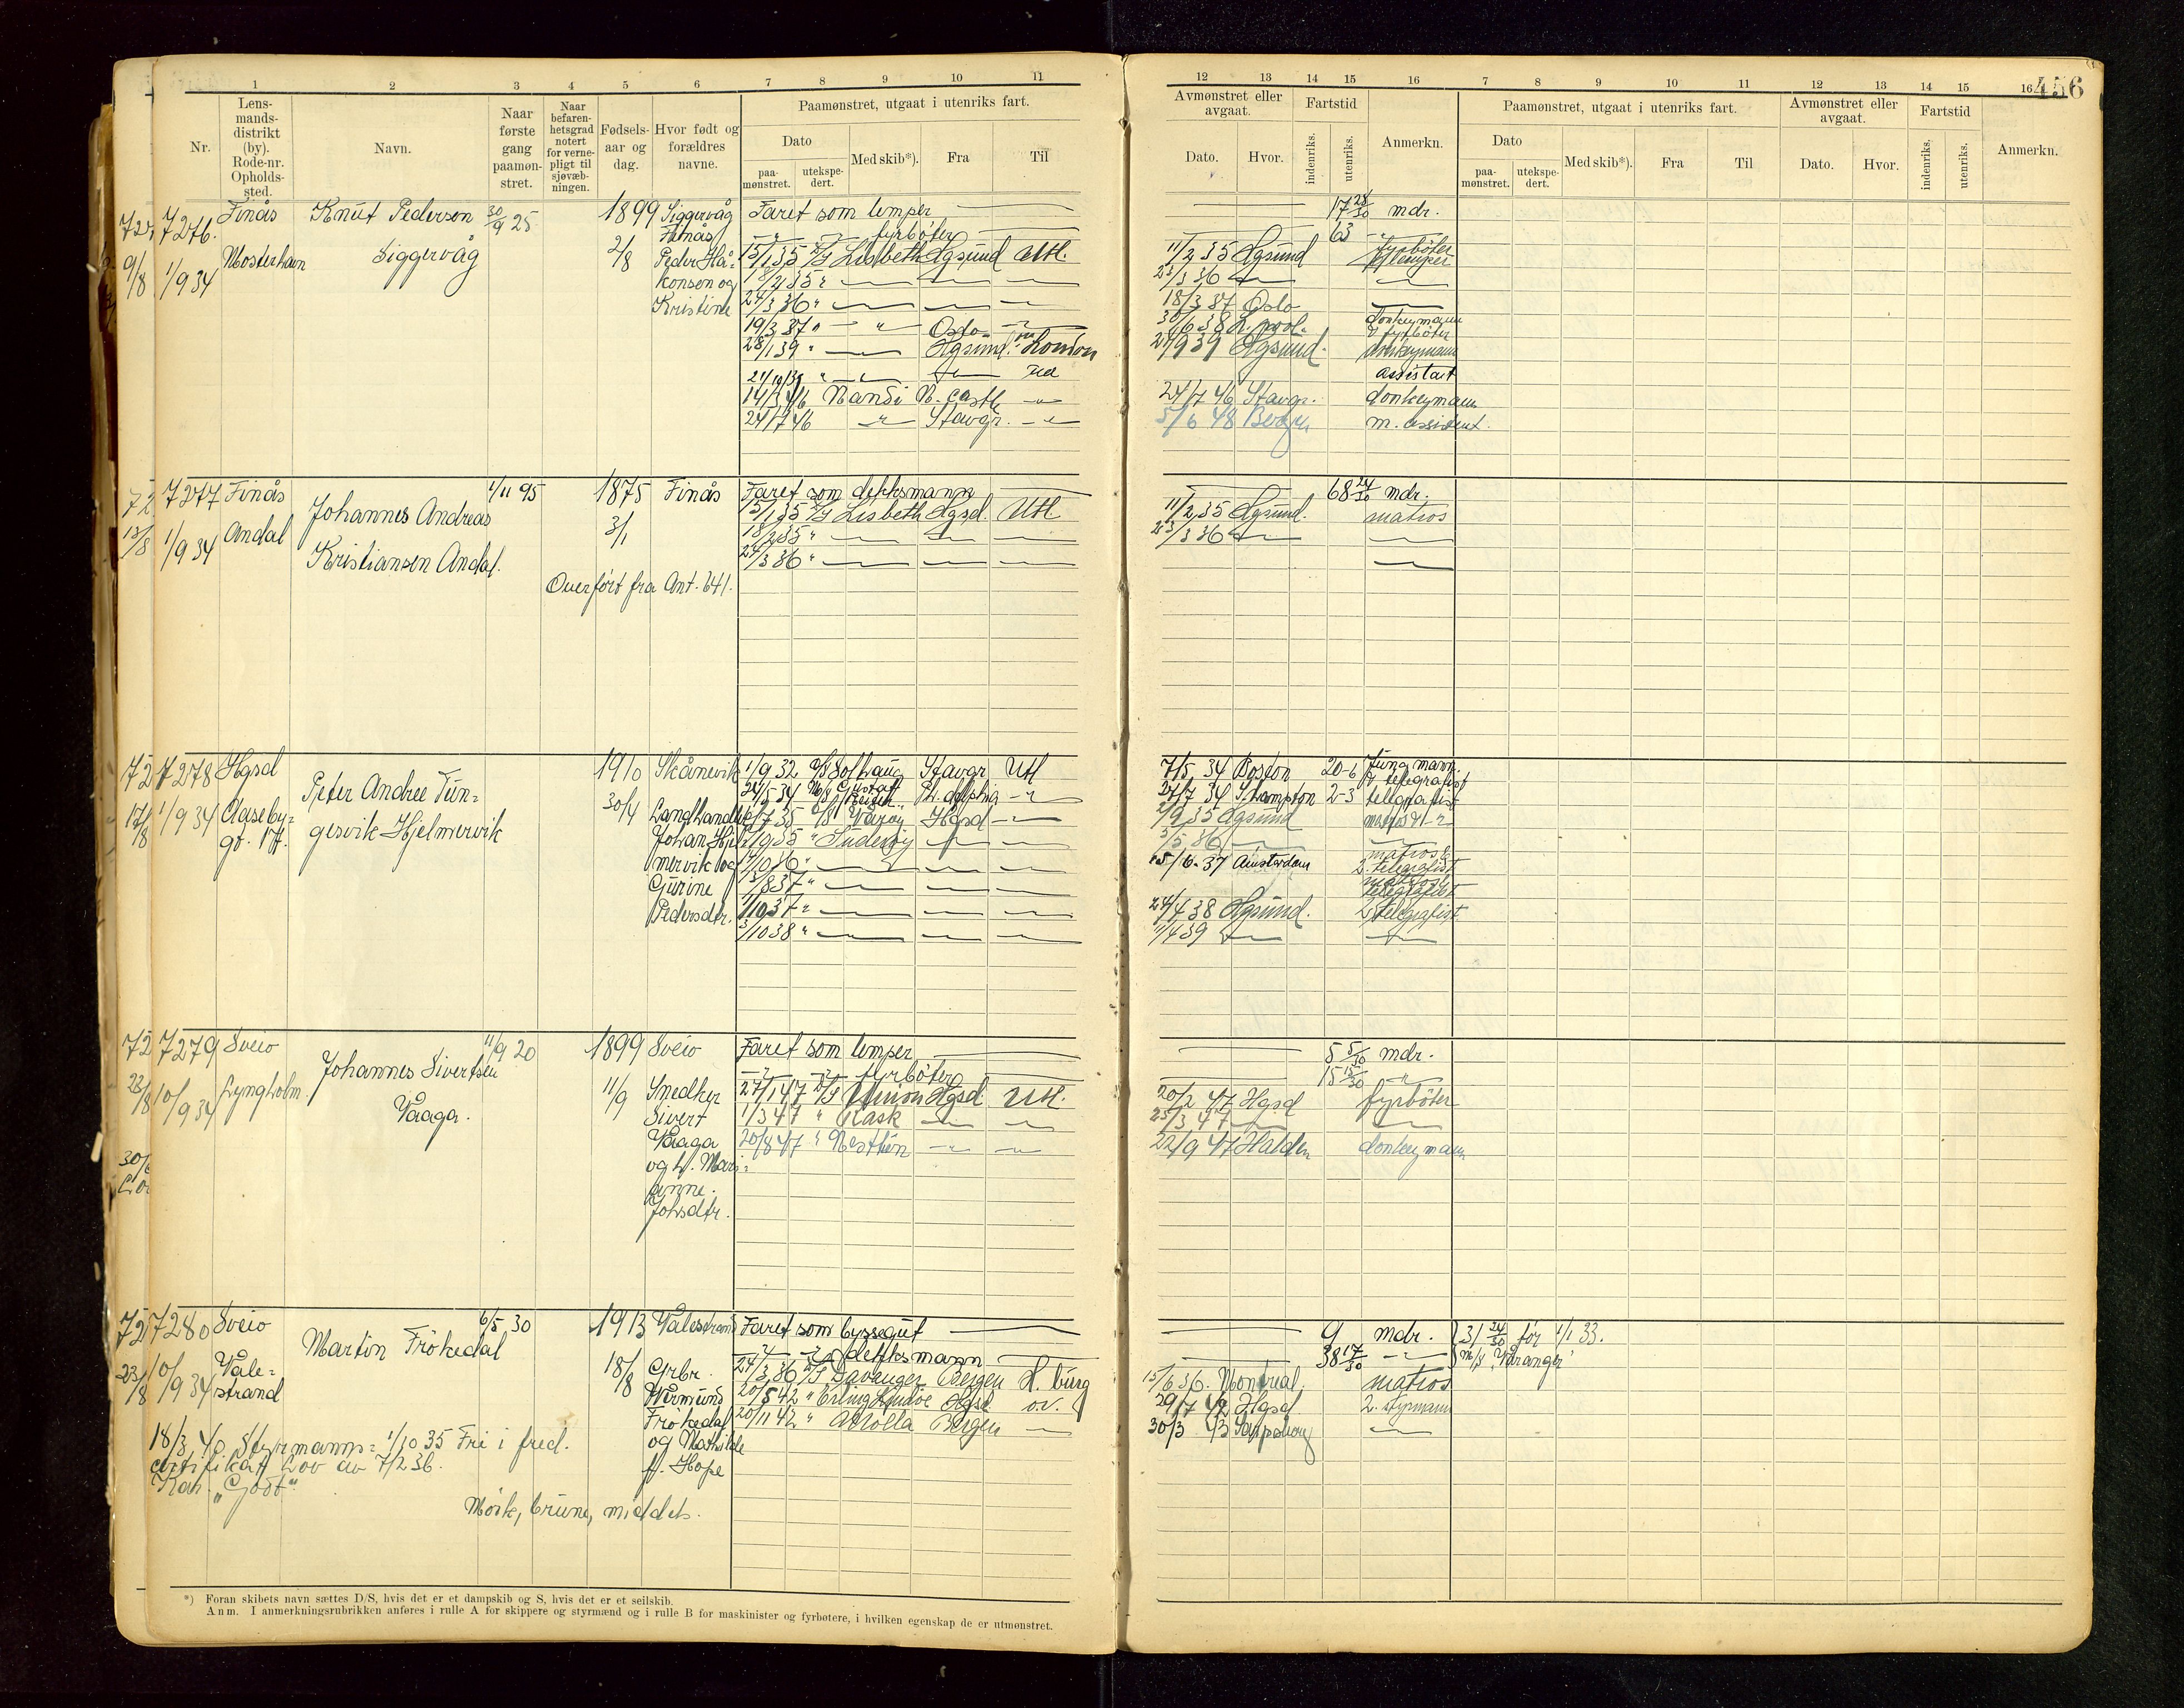 456
1 2 3 4 5 6 7 8 9 10 11
Nr.
Lens-
mands-
distrikt
(by).
Rode-nr.
Opholds-
sted.
Navn.
Naar
første
gang
paamøn-
stret.
Naar
befaren-
hetsgrad
notert
for verne-
pligt til
sjøvæb-
ningen.
Fødsels-
aar og
dag.
Hvor født og
forældres
navne.
Paamønstret, utgaat i utenriks fart.
Dato
paa-
mønstret.
utekspe-
dert.
Med skib*).
Fra
Til
12 13 14 15 16 7 8 9 10 11 12 13 14 15 16
Avmønstret eller
avgaat.
Dato.
Hvor.
Fartstid
indenriks.
utenriks.
Anmerkn.
Paamønstret, utgaat i utenriks fart.
Dato
paa-
mønstret.
utekspe-
dert.
Med skib*).
Fra
Til
Avmønstret eller
avgaat.
Dato.
Hvor.
Fartstid
indenriks.
utenriks.
Anmerkn.
7276. Finås Knut Pedersen 30/9 25 1899 Siggervåg Faret som lemper
1/9 34 Mosterhavn Siggervåg 2/8 Finås
Peder Hå-
konsen og
Kristine
fyrbøter
15/1 35 D/S Lisbeth Hgsund Utl.
18/2 35 "
24/3 36 "
19/3 37 " Oslo
28/1 39 " Hgsund London
21/10 39
14/3 46 Nandi N. castle
24/7 46 Stavgr.
17 28/30 mdr.
63
11/2 35 Hgsund fyrbøter
lemper
23/3 36
18/3 37 Oslo
30/6 38 L. pool. donkeymann
fyrbøter
27/9 39 Hgsund. donkeymann
assistent
24/7 46 Stavgr. donkeymann
5/6 48 Bergen m. assistent.
7277 Finås Johannes Andreas 1/11 95 1875 Finås Faret som dekksmann
1/9 34 Andal Kristiansen Andal. 3/1
Overført fra Ant. 641.
15/1 35 D/S Lisbeth Hgsd. Utl
18/2 35 "
24/3 36 "
68 24/30 mdr.
11/2 35 Hgsund. matros
23/3 36
7278 Hgsd Peter Andree Tun- 1910 Skånevik
1/9 34 Aaseby- gesvik Hjelmervik 30/4 Landhandler
gt. 17.
Johan Hjel-
mervik og
Gurine
Pedersdtr.
1/9 32 Solhaug Stavgr. Utl
24/5 34 M/S Gustaf Reuter Ph. delphia
7 35 Varøy Hgsd
9 35 " Suderøy
10 36 "
8 37 "
10 37 "
10 38 "
7/5 34 Boston 20-6 Jungmann
telegrafist
27/7 34 S.hampton 2-3 telegrafist
9 35 Hgsund
5 36
15/6-37 Amsterdam 2. telegrafist
24/4 38 Hgsund. 2 telegrafist
11/4 39
7279 Sveio Johannes Sivertsen 11/9 20 1899 Sveio Faret som lemper
10/9 34 Lyngholm. Vaaga. 11/9 Snedker
Sivert
Vaaga
og h. Mari-
anne
Johsdtr.
fyrbøter
27/1 47 D/S Union Hgsd Utl.
1/3 47 " Rask
20/8 47 " Nesttun
5 5/30 mdr.
15 15/30
20/2 47 Hgsd fyrbøter
25/3 47
22/9 47 Halden donkeymann
7280 Sveio Martin Frökedal 6/5 30 1913 Valestrand Faret som byssegut
10/9 34 Vale-
strand
18/8 Grbr.
Wermund
Frökedal
og Mathilde
f. Hope
dekksmann
24/3 36 D/S Davanger Bergen H. burg
20/5 42 " Erling Lindøe Hgsd o.v.
20/11 42 " Arolla Bergen
9 mdr. 31 24/30 før 1/1 33.
38 17/30 M/S "Varanger"
15/6 36. Montreal matros
29/7 42 Hgsd 2. styrmann
30/3 43 Sarpsborg
18/3 40 Styrmanns- 1/10 35 Fri i fred.
certifikat Lov av 7/2 36.
Kar. "Godt"
Mörk, brune, middels.
*) Foran skibets navn sættes D/S, hvis det er et dampskib og S, hvis det er et seilskib.
Anm. I anmerkningsrubrikken anføres i rulle A for skippere og styrmænd og i rulle B for maskinister og fyrbøtere, i hvilken egenskap de er utmønstret.